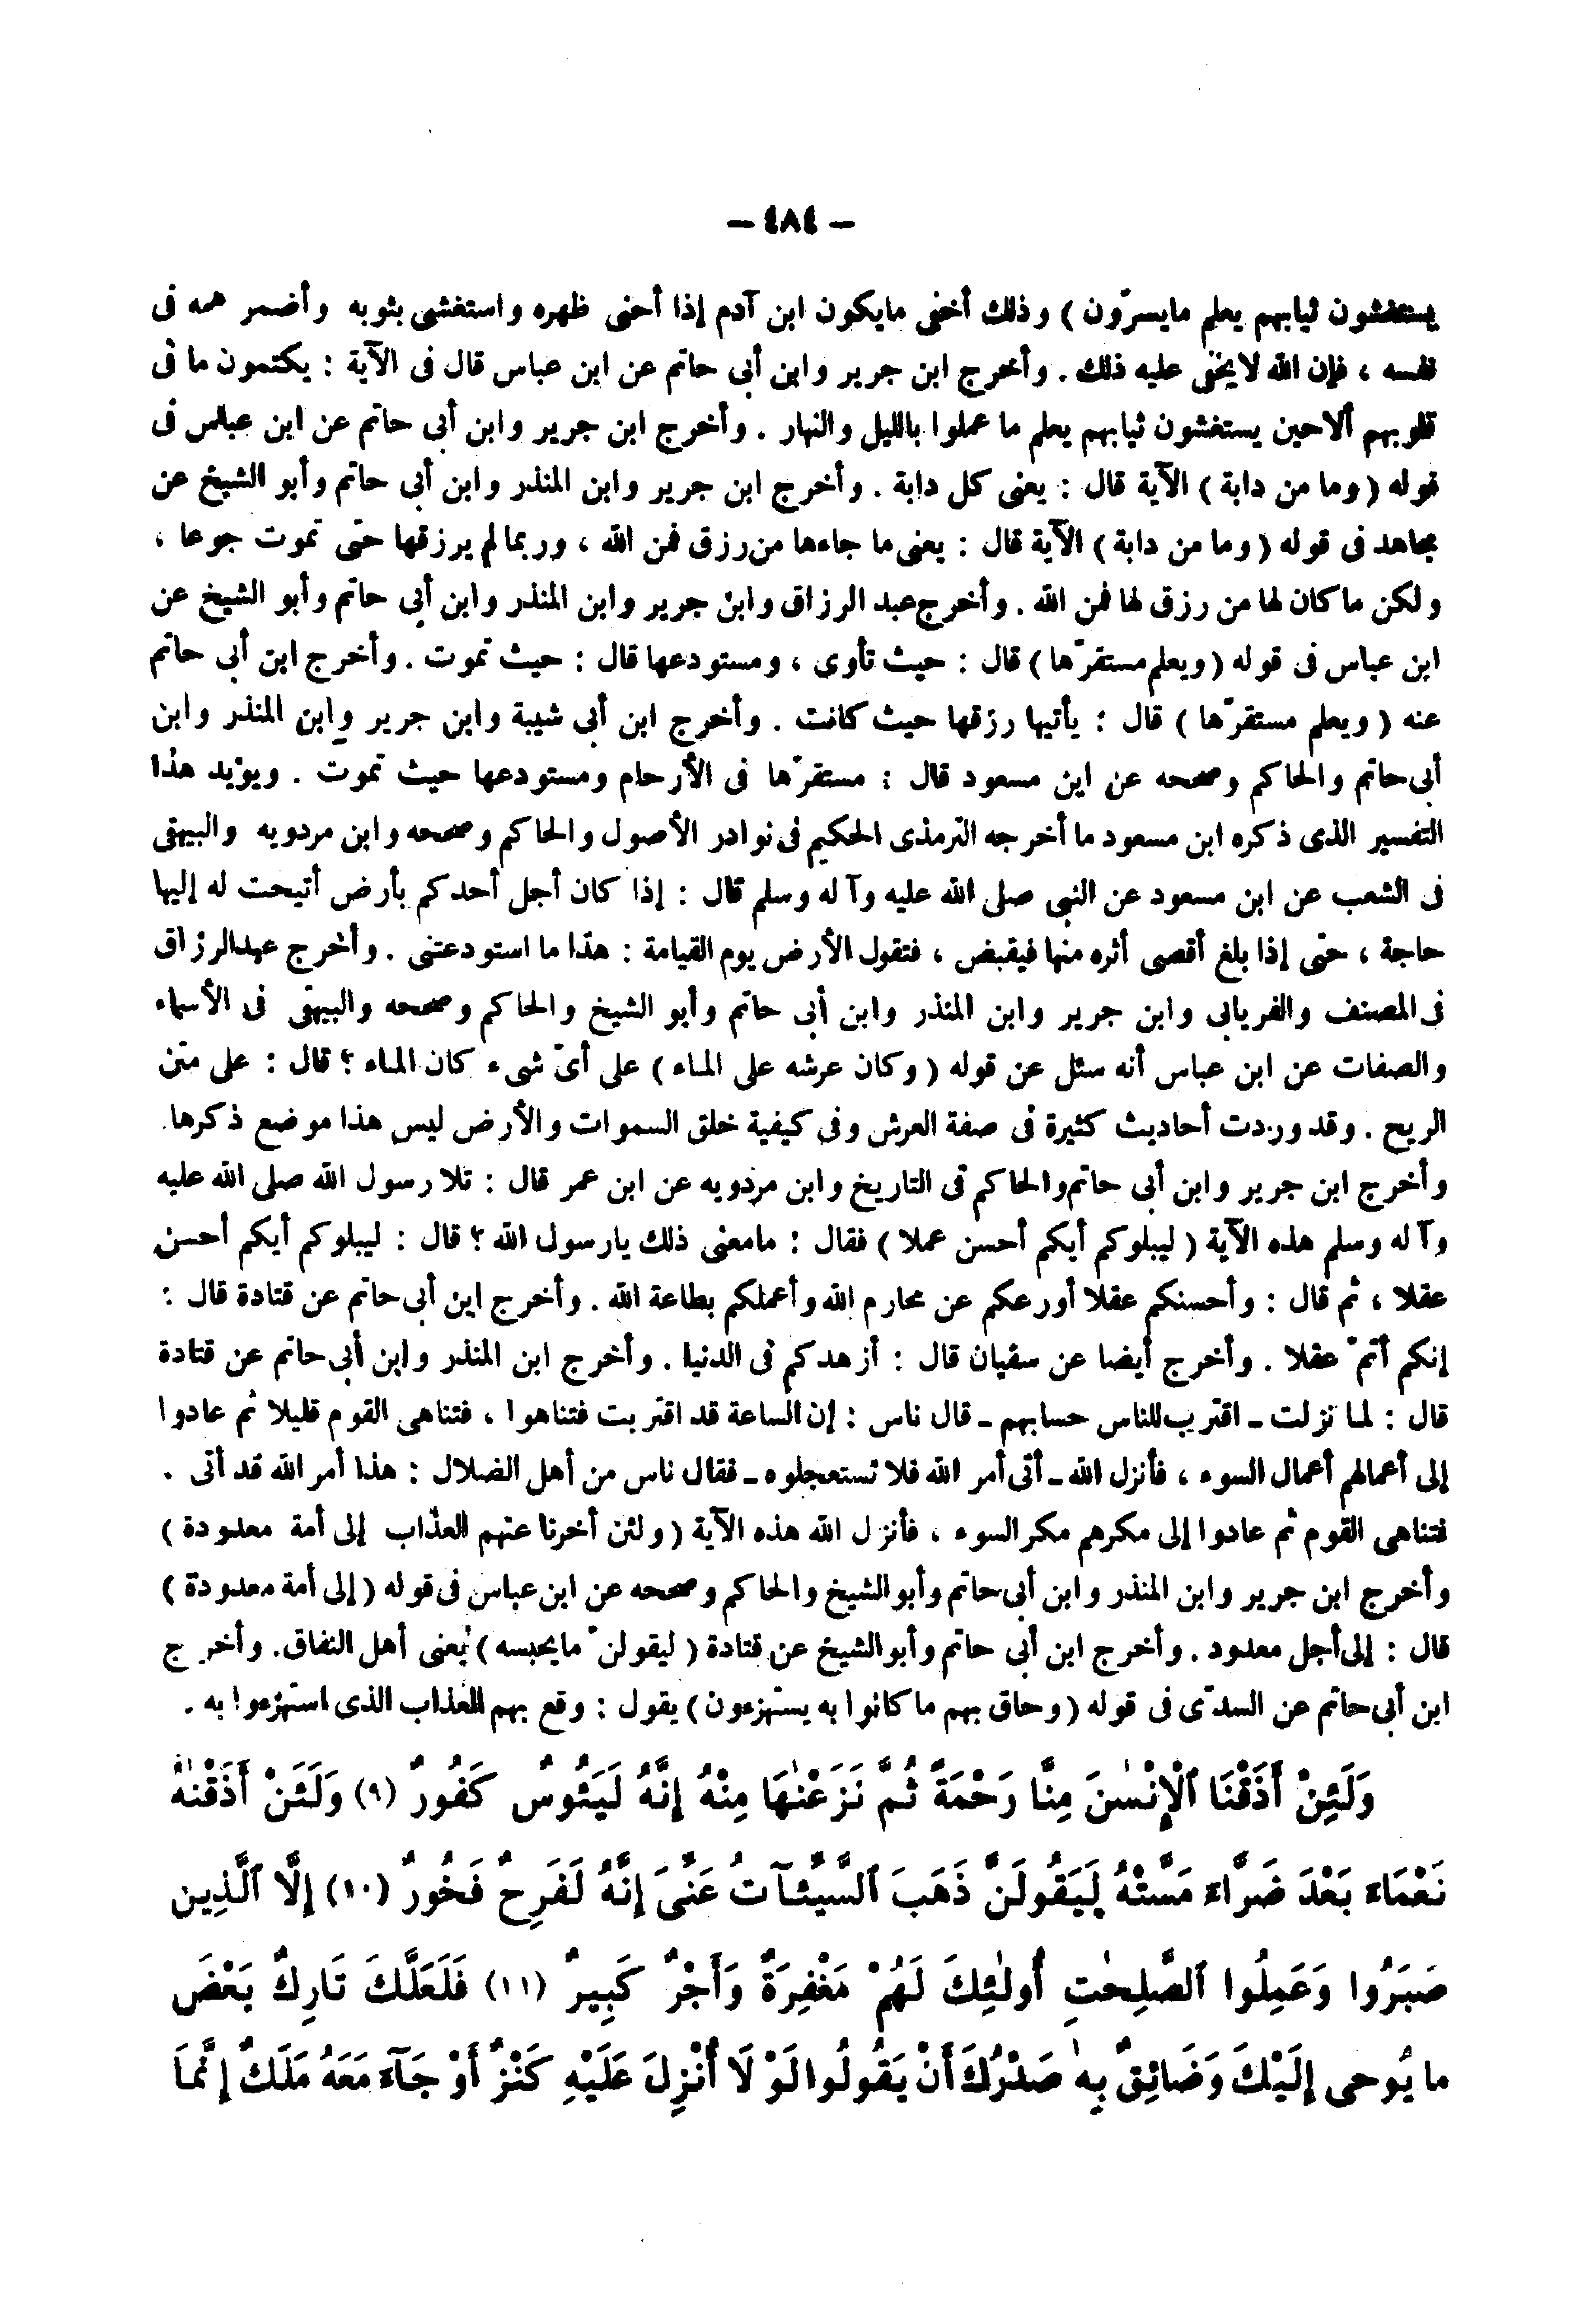 — ٤٨٤ —
يستغشون ثيابهم يعلم مايسرّون ) وذلك أخفى مايكون ابن آدم إذا أحنى ظهره واستغشى بثوبه وأضمر همه فى
نفسه ، فإن الله لايخفى عليه ذلك . وأخرج ابن جرير وابن أبى حاتم عن ابن عباس قال فى الآية : يكتمون ما فى
قلوبهم ألاحين يستغشون ثيابهم يعلم ما عملوا بالليل والنهار . وأخرج ابن جرير وابن أبى حاتم عن ابن عباس فى
قوله ( وما من دابة ) الآية قال : يعنى كل دابة . وأخرج ابن جرير وابن المنذر وابن أبى حاتم وأبو الشيخ عن
مجاهد فى قوله ( وما من دابة ) الآية قال : يعنى ما جاءها من رزق فمن الله ، وربما لم يرزقها حتى تموت جوعا ،
ولكن ما كان لها من رزق لها فمن الله . وأخرج عبد الرزاق وابن جرير وابن المنذر وابن أبى حاتم وأبو الشيخ عن
ابن عباس فى قوله ( ويعلم مستقرّها ) قال : حيث تأوى ، ومستودعها قال : حيث تموت . وأخرج ابن أبى حاتم
عنه ( ويعلم مستقرّها ) قال : يأتيها رزقها حيث كانت . وأخرج ابن أبى شيبة وابن جرير وابن المنذر وابن
أبى حاتم والحاكم وصححه عن ابن مسعود قال : مستقرّها فى الأرحام ومستودعها حيث تموت . ويؤيد هذا
التفسير الذى ذكره ابن مسعود ما أخرجه الترمذى الحكيم فى نوادر الأصول والحاكم وصححه وابن مردويه والبيهقى
فى الشعب عن ابن مسعود عن النبى صلى الله عليه وآله وسلم قال : إذا كان أجل أحدكم بأرض أتيحت له إليها
حاجة ، حتى إذا بلغ أقصى أثره منها فيقبض ، فتقول الأرض يوم القيامة : هذا ما استودعتنى . وأخرج عبدالرزاق
فى المصنف والفريابى وابن جرير وابن المنذر وابن أبى حاتم وأبو الشيخ والحاكم وصححه والبيهقى فى الأسماء
والصفات عن ابن عباس أنه سئل عن قوله ( وكان عرشه على الماء ) على أىّ شىء كان الماء ؟ قال : على متن
الريح . وقد وردت أحاديث كثيرة فى صفة العرش وفى كيفية خلق السموات والأرض ليس هذا موضع ذكرها.
وأخرج ابن جرير وابن أبى حاتم والحاكم فى التاريخ وابن مردويه عن ابن عمر قال : تلا رسول الله صلى الله عليه
وآله وسلم هذه الآية ( ليبلوكم أيكم أحسن عملا ) فقال : مامعنى ذلك يارسول الله ؟ قال : ليبلوكم أيكم أحسن
عقلا ، ثم قال : وأحسنكم عقلا أورعكم عن محارم الله وأعملكم بطاعة الله . وأخرج ابن أبى حاتم عن قتادة قال :
إنكم أتمّ عقلا . وأخرج أيضا عن سفيان قال : أزهدكم فى الدنيا . وأخرج ابن المنذر وابن أبى حاتم عن قتادة
قال : لما نزلت ـ اقترب للناس حسابهم ـ قال ناس : إن الساعة قد اقتربت فتناهوا ، فتناهى القوم قليلا ثم عادوا
إلى أعمالهم أعمال السوء ، فأنزل الله ـ أتى أمر الله فلا تستعجلوه ـ فقال ناس من أهل الضلال : هذا أمر الله قد أتى .
فتناهى القوم ثم عادوا إلى مكرهم مكر السوء ، فأنزل الله هذه الآية ( ولئن أخرنا عنهم العذاب إلى أمة معدودة )
وأخرج ابن جرير وابن المنذر وابن أبى حاتم وأبو الشيخ والحاكم وصححه عن ابن عباس فى قوله ( إلى أمة معدودة )
قال : إلى أجل معدود . وأخرج ابن أبى حاتم وأبو الشيخ عن قتادة ( ليقولنّ مايحبسه ) يعنى أهل النفاق. وأخرج
ابن أبى حاتم عن السدّى فى قوله ( وحاق بهم ما كانوا به يستهزءون ) يقول : وقع بهم العذاب الذى استهزءوا به .
وَلَئِنْ أَذَقْنَا ٱلْإِنْسٰنَ مِنَّا رَحْمَةً ثُمَّ نَزَعْنٰهَا مِنْهُ إِنَّهُ لَيَئُوسٌ كَفُورٌ (٩) وَلَئَنْ أَذَقْنٰهُ
نَعْمَاءَ بَعْدَ ضَرَّاءَ مَسَّتْهُ لَيَقُولَنَّ ذَهَبَ ٱلسَّيِّـَٔاتُ عَنِّىَ إِنَّهُ لَفَرِحٌ فَخُورٌ (١٠) إِلَّا ٱلَّذِين
صَبَرُوا وَعَمِلُوا ٱلصَّلِحٰتِ أُولٰئِكَ لَهُمْ مَغْفِرَةٌ وَأَجْرٌ كَبِيرٌ (١١) فَلَعَلَّكَ تَارِكٌ بَعْضَ
ما يُوحى إِلَيْكَ وَضَائِقٌ بِهِ صَدْرُكَ أَنْ يَقُولُوا لَوْ لَا أُنْزِلَ عَلَيْهِ كَنْزٌ أَوْ جَآءَ مَعَهُ مَلَكٌ إِنَّمَا